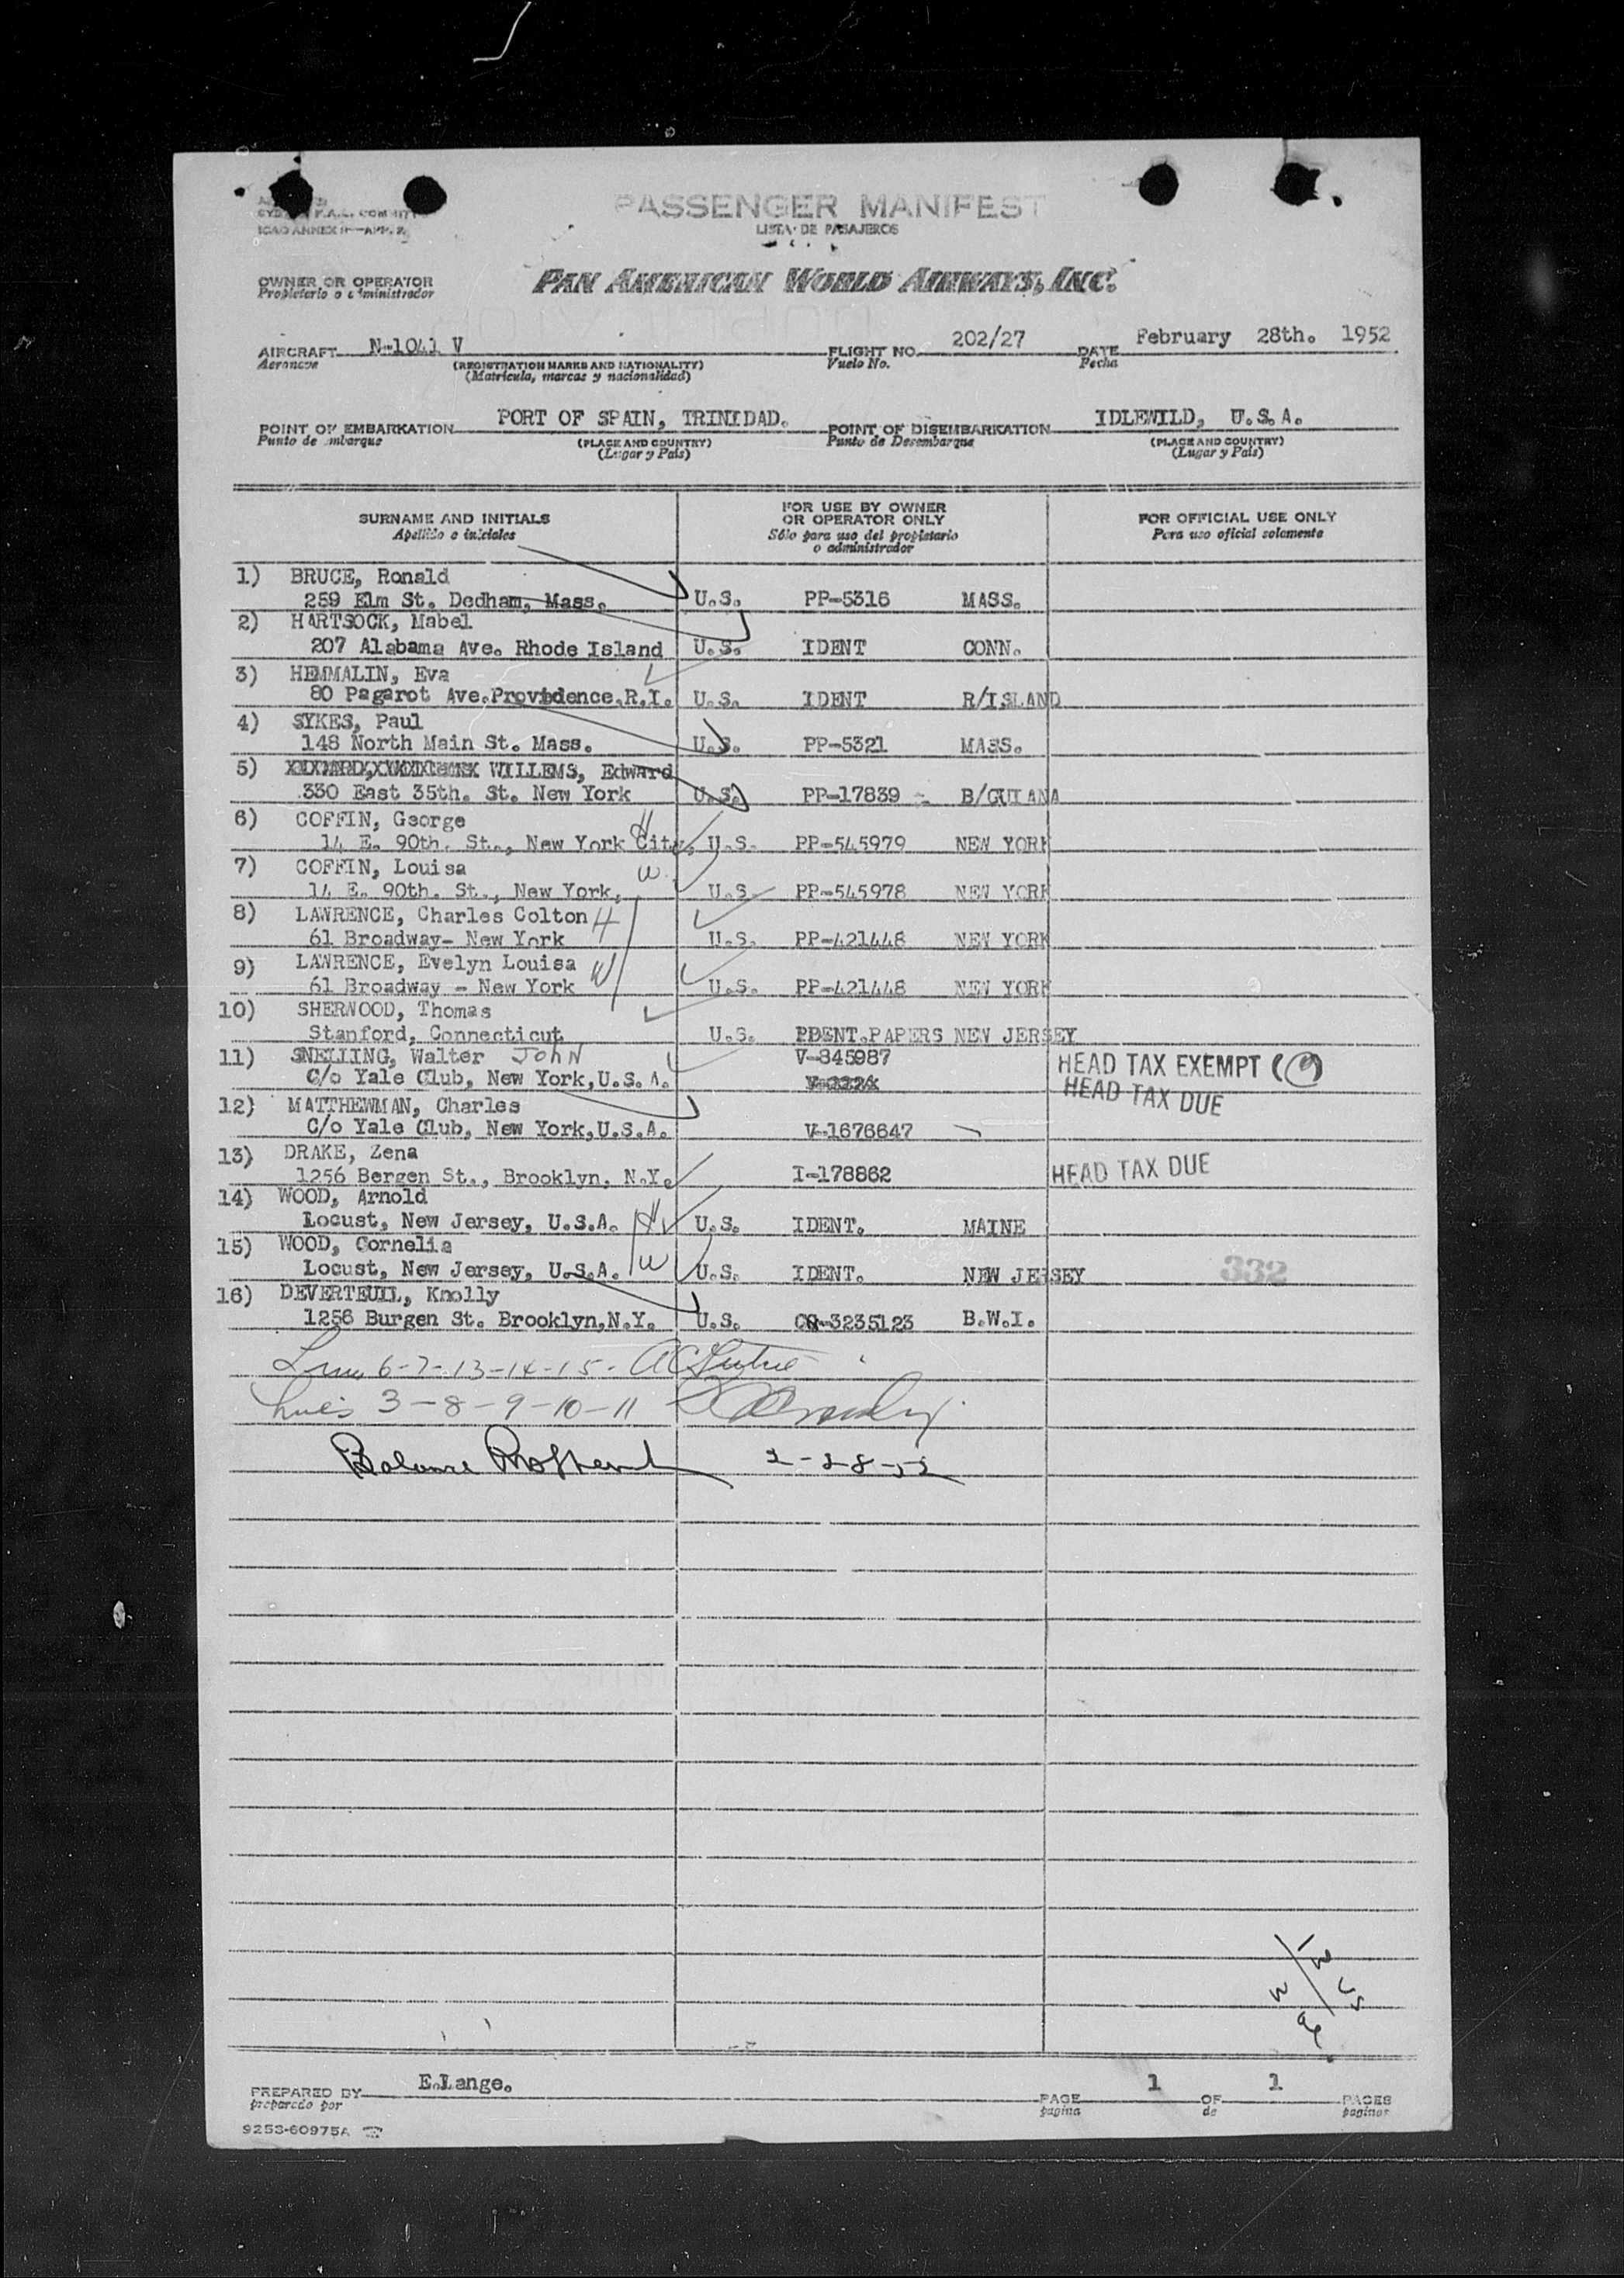 PASSENGER MANIFEST
LISTA DE PASAJEROS
ICAO ANNEX 9—APP. 2
OWNER OR OPERATOR
Propietario o administrador
PAN AMERICAN WORLD AIRWAYS, INC.
AIRCRAFT N-1041 V FLIGHT NO. 202/27 DATE February 28th. 1952
Aeronave (REGISTRATION MARKS AND NATIONALITY) Vuelo No. Fecha
(Matrícula, marcas y nacionalidad)
POINT OF EMBARKATION PORT OF SPAIN, TRINIDAD. POINT OF DISEMBARKATION IDLEWILD, U.S.A.
Punto de embarque (PLACE AND COUNTRY) Punto de Desembarque (PLACE AND COUNTRY)
(Lugar y País) (Lugar y País)
SURNAME AND INITIALS FOR USE BY OWNER OR OPERATOR ONLY FOR OFFICIAL USE ONLY
Apellido e iniciales Sólo para uso del propietario o administrador Para uso oficial solamente
1) BRUCE, Ronald
259 Elm St. Dedham, Mass. U.S. PP-5316 MASS.
2) HARTSOCK, Mabel
207 Alabama Ave. Rhode Island U.S. IDENT CONN.
3) HEMMALIN, Eva
80 Pagarot Ave.Providence.R.I. U.S. IDENT R/ISLAND
4) SYKES, Paul
148 North Main St. Mass. U.S. PP-5321 MASS.
5) WILLEMS, Edward
330 East 35th. St. New York U.S. PP-17839 B/GUIANA
6) COFFIN, George H
14 E. 90th. St., New York City, U.S. PP-545979 NEW YORK
7) COFFIN, Louisa W
14 E. 90th. St., New York, U.S. PP-545978 NEW YORK
8) LAWRENCE, Charles Colton H
61 Broadway- New York U.S. PP-421448 NEW YORK
9) LAWRENCE, Evelyn Louisa W
61 Broadway - New York U.S. PP-421448 NEW YORK
10) SHERWOOD, Thomas
Stanford, Connecticut U.S. IDENT.PAPERS NEW JERSEY
11) SNELLING, Walter JOHN V-845987 HEAD TAX EXEMPT (9)
C/o Yale Club, New York,U.S.A. HEAD TAX DUE
12) MATTHEWMAN, Charles
C/o Yale Club, New York,U.S.A. V-1676647
13) DRAKE, Zena
1256 Bergen St., Brooklyn, N.Y. I-178862 HEAD TAX DUE
14) WOOD, Arnold
Locust, New Jersey, U.S.A. H U.S. IDENT. MAINE
15) WOOD, Cornelia
Locust, New Jersey, U.S.A. W U.S. IDENT. NEW JERSEY 332
16) DEVERTEUIL, Knolly
1256 Burgen St. Brooklyn,N.Y. U.S. CN-3235123 B.W.I.
6-7-13-14-15-
Lines 3-8-9-10-11
Balance 2-28-52
13 US
3 al
PREPARED BY E.Lange. PAGE 1 OF 1 PAGES
preparado por pagina de paginas
9253-60975A